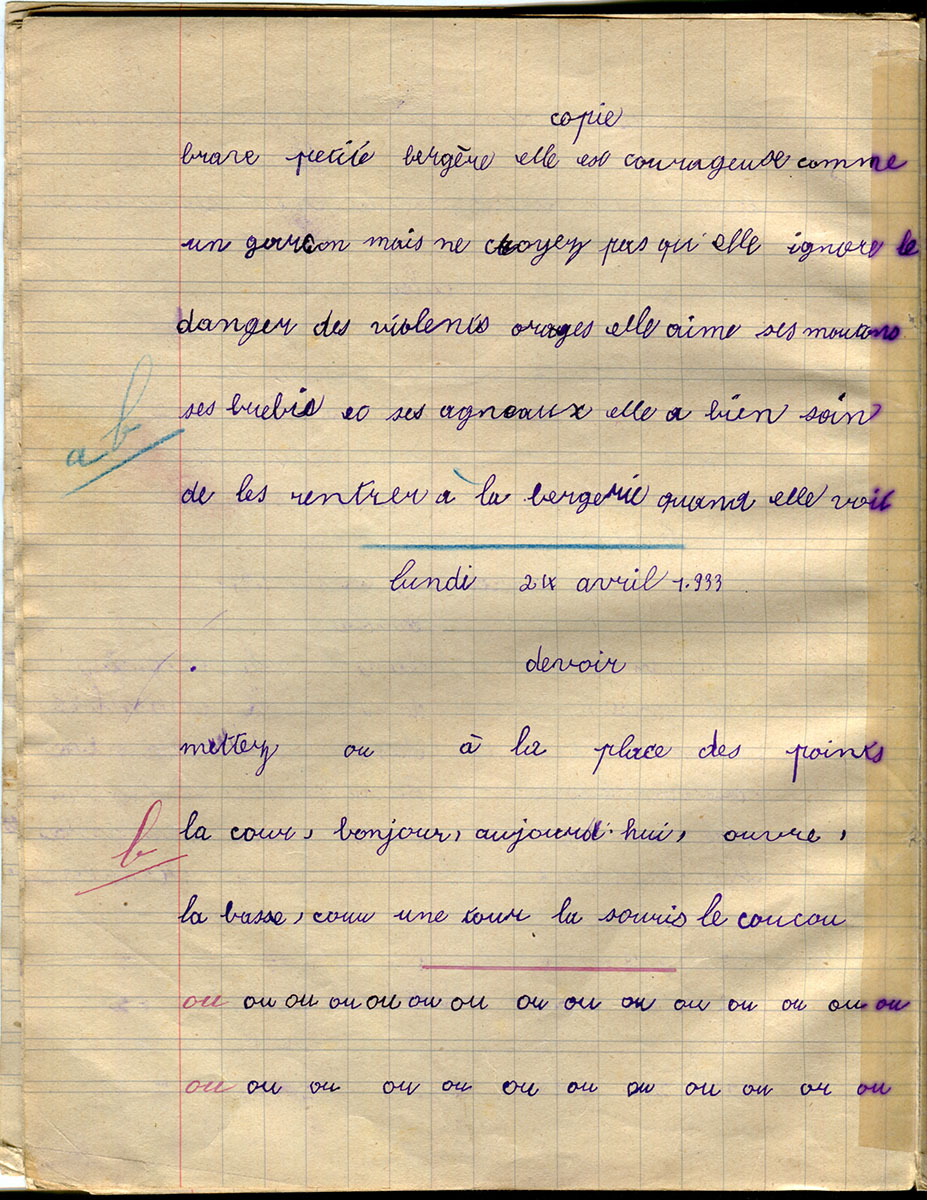 copie
brave petite bergère elle est courageuse comme
un garcon mais ne croyez pas qu'elle ignore le
danger des violents orages elle aime ses moutons
ses brebis et ses agneaux elle a bien soin
ab
de les rentrer à la bergerie quand elle voit
lundi 24 avril 1.933
devoir
mettez ou à la place des points
la cour, bonjour, aujourd'hui, ouvre,
b
la basse, cour une tour la souris le coucou
ou ou ou ou ou ou ou ou ou ou ou ou ou ou ou
ou ou ou ou ou ou ou ou ou ou ou ou